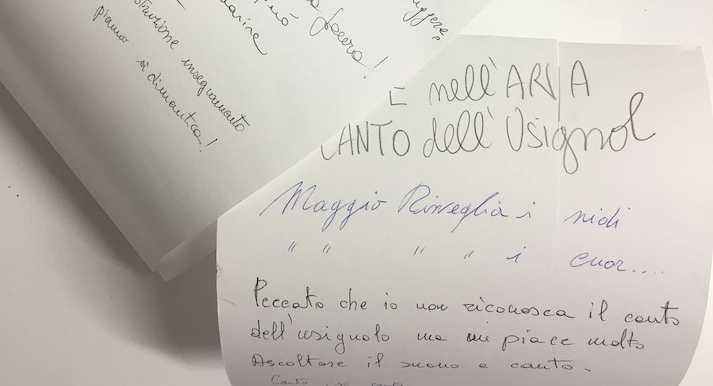 uggere,
può
facera!
struzione insegnamento
piamo si dimentica!
E nell'ARIA
CANTO dell'Usignol
Maggio Risveglia i nidi
" " " " i cuor....
Peccato che io non riconosca il canto
dell'usignolo ma mi piace molto
Ascoltare il suono e canto.